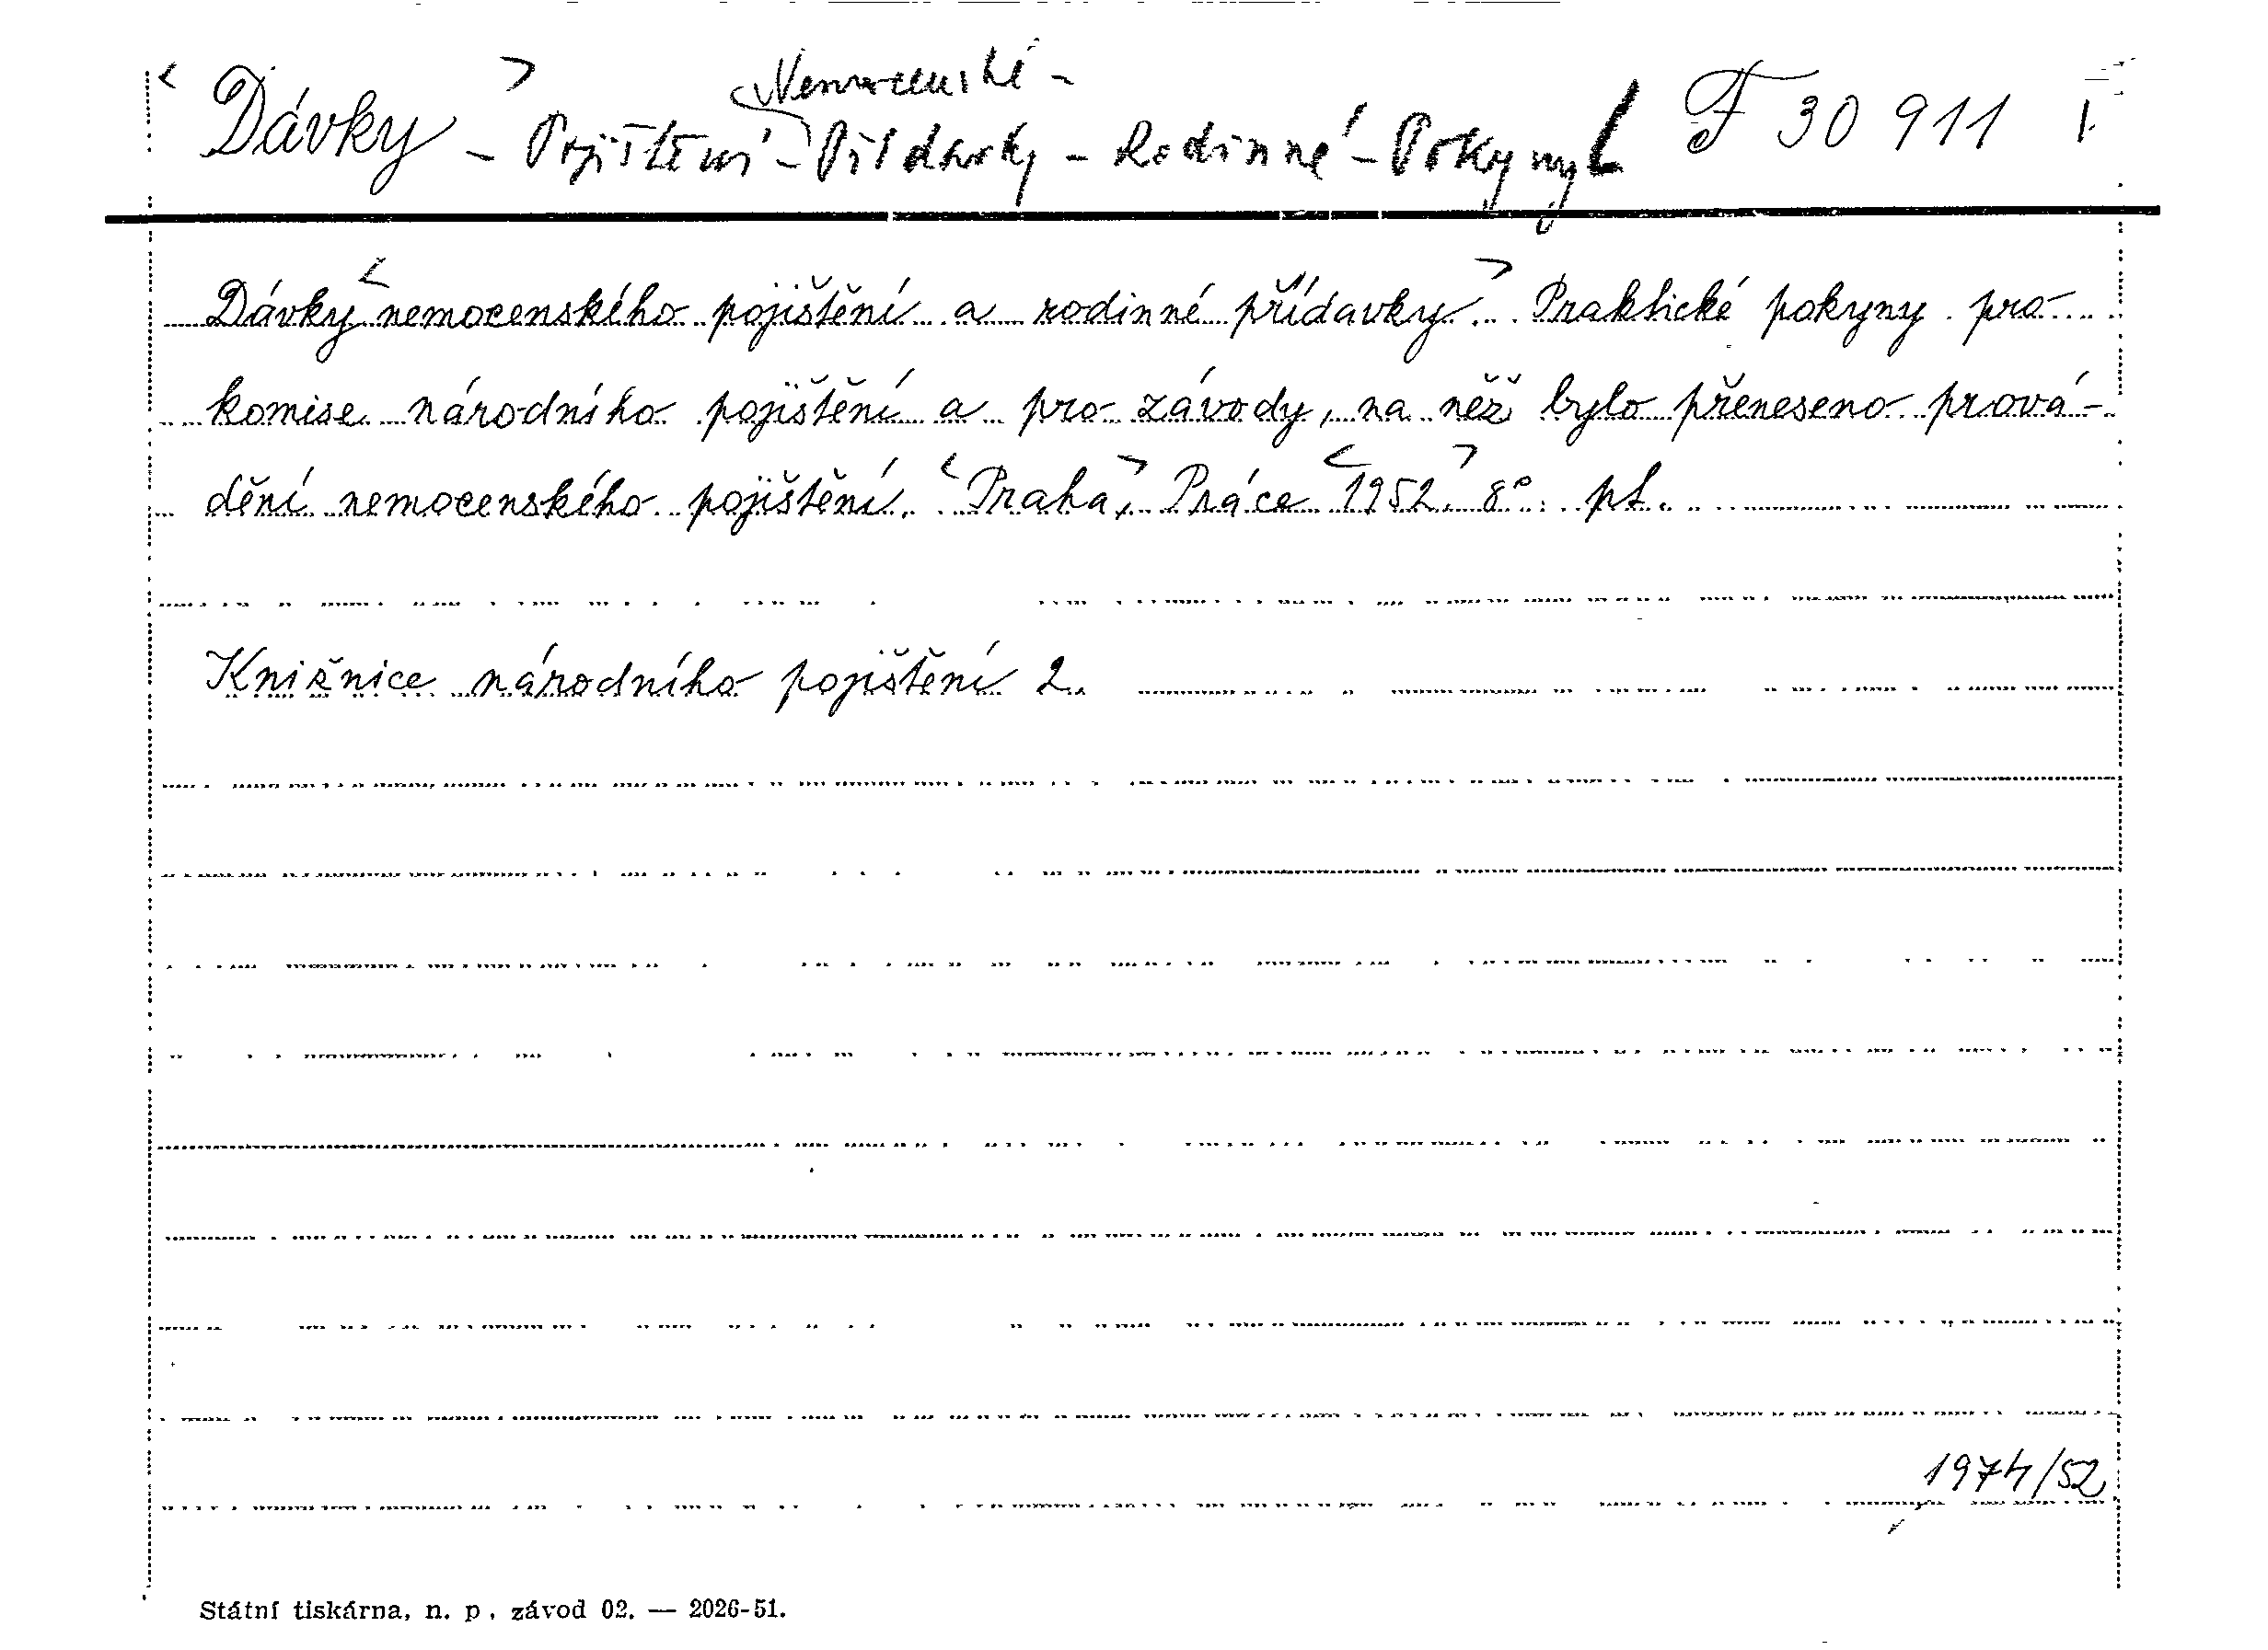 Nemocenské -
< Dávky > - Pojištění - Přídavky - Rodinné - Pokyny F 30 911
Dávky < nemocenského pojištění a rodinné přídavky. > Praktické pokyny pro
komise národního pojištění a pro závody, na něž bylo přeneseno prová-
dění nemocenského pojištění. < Praha, > Práce < 1952. > 8° pt.
Knižnice národního pojištění 2.
1974/52
Státní tiskárna, n. p. závod 02. — 2026-51.